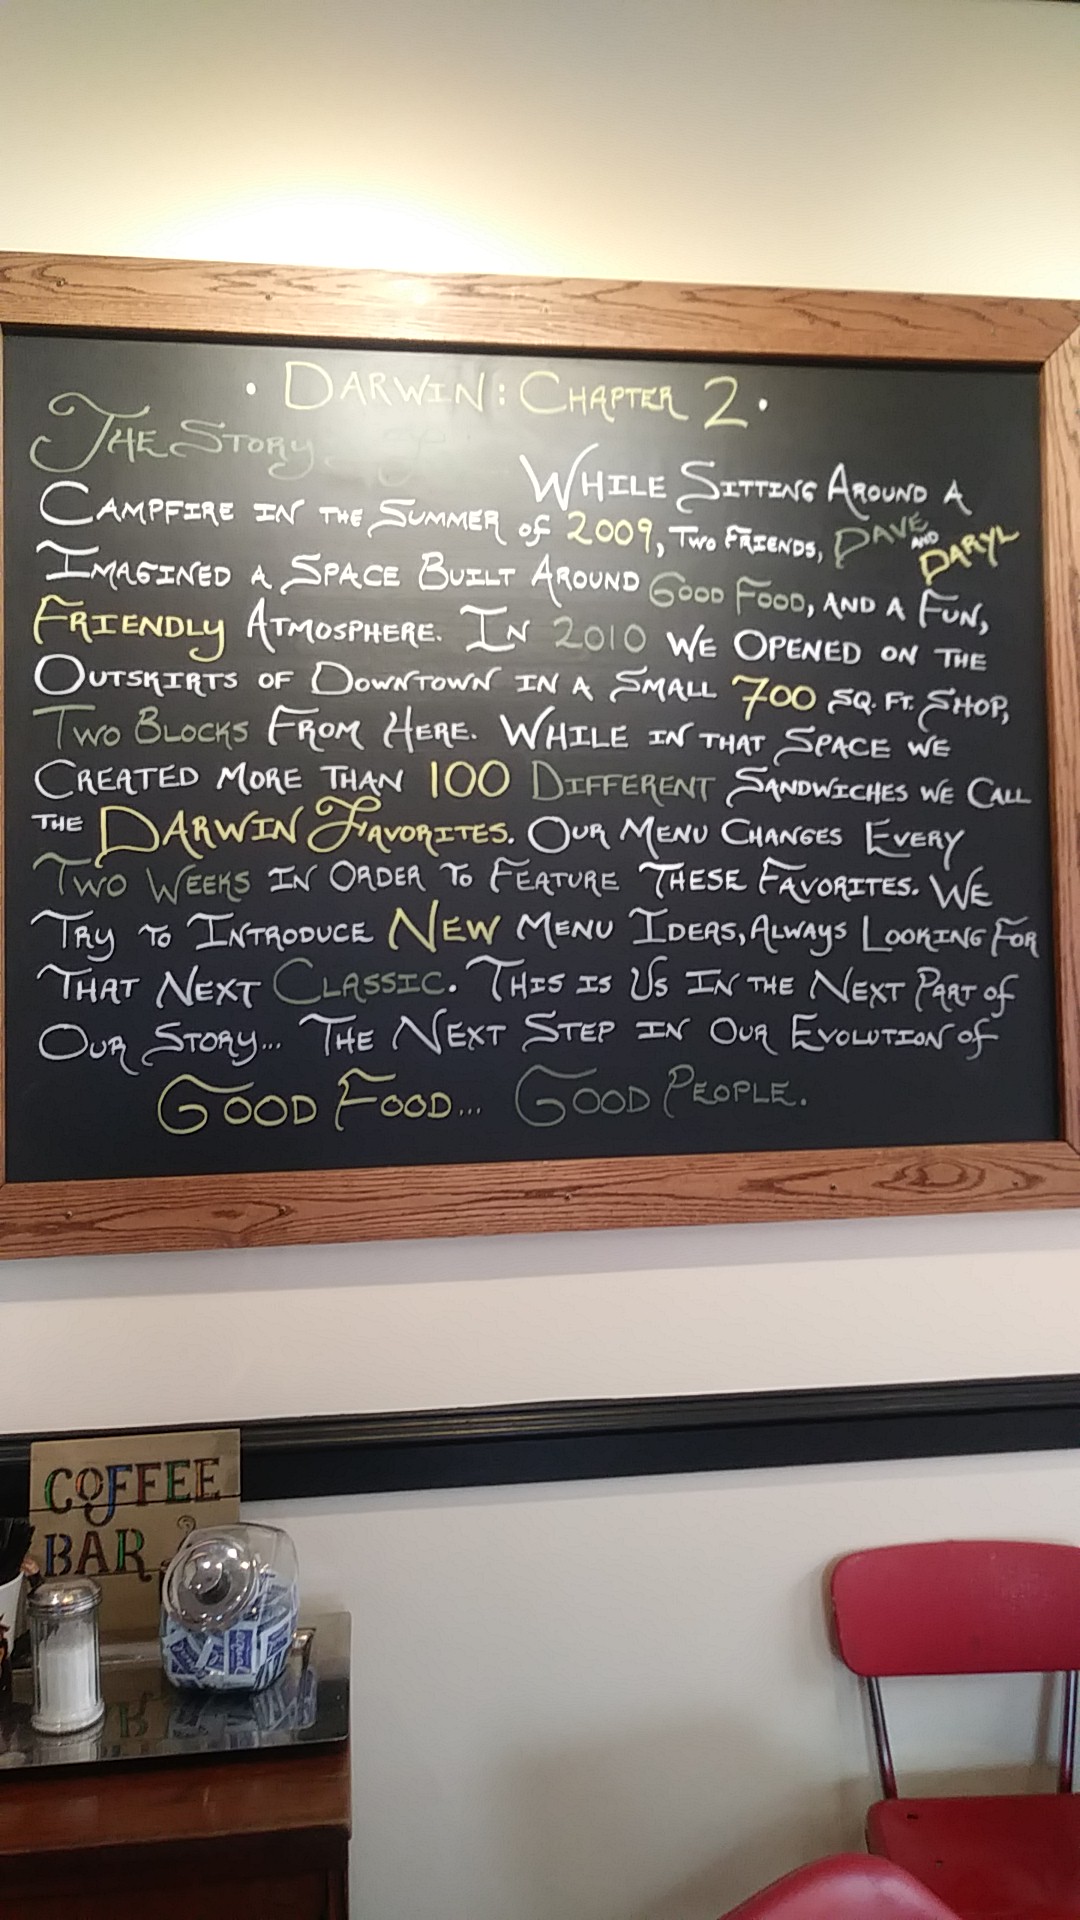 • DARWIN: CHAPTER 2 •
THE STORY
WHILE SITTING AROUND A
CAMPFIRE IN THE SUMMER OF 2009, TWO FRIENDS, DAVE AND DARYL
IMAGINED A SPACE BUILT AROUND GOOD FOOD, AND A FUN,
FRIENDLY ATMOSPHERE. IN 2010 WE OPENED ON THE
OUTSKIRTS OF DOWNTOWN IN A SMALL 700 SQ. FT. SHOP,
TWO BLOCKS FROM HERE. WHILE IN THAT SPACE WE
CREATED MORE THAN 100 DIFFERENT SANDWICHES WE CALL
THE DARWIN FAVORITES. OUR MENU CHANGES EVERY
TWO WEEKS IN ORDER TO FEATURE THESE FAVORITES. WE
TRY TO INTRODUCE NEW MENU IDEAS, ALWAYS LOOKING FOR
THAT NEXT CLASSIC. THIS IS US IN THE NEXT PART OF
OUR STORY... THE NEXT STEP IN OUR EVOLUTION OF
GOOD FOOD... GOOD PEOPLE.
COFFEE
BAR